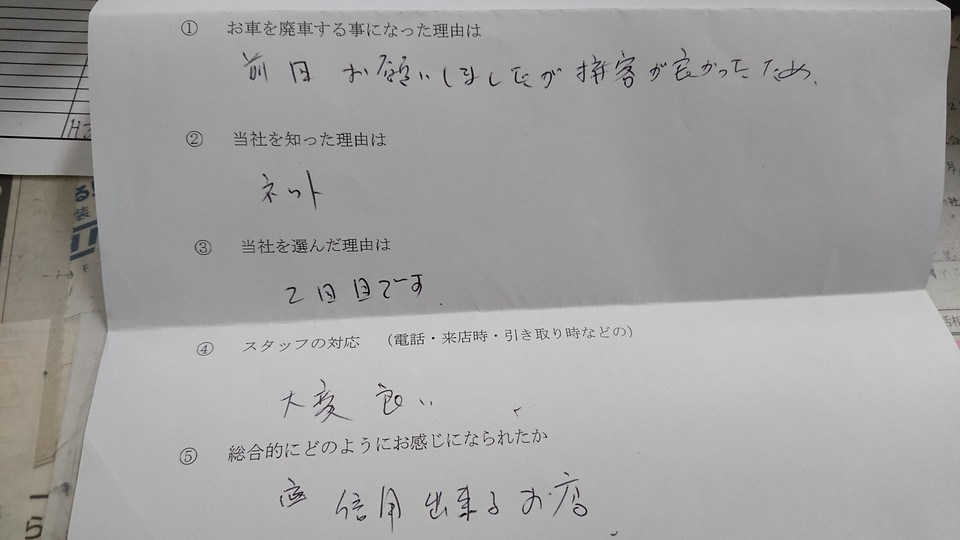 ① お車を廃車する事になった理由は
前回 お願いしましたが 接客が良かった ため.
② 当社を知った理由は
ネット
③ 当社を選んだ理由は
2回目です.
④ スタッフの対応 （電話・来店時・引き取り時などの）
大変 良い
⑤ 総合的にどのようにお感じになられたか
信用 出来る お店